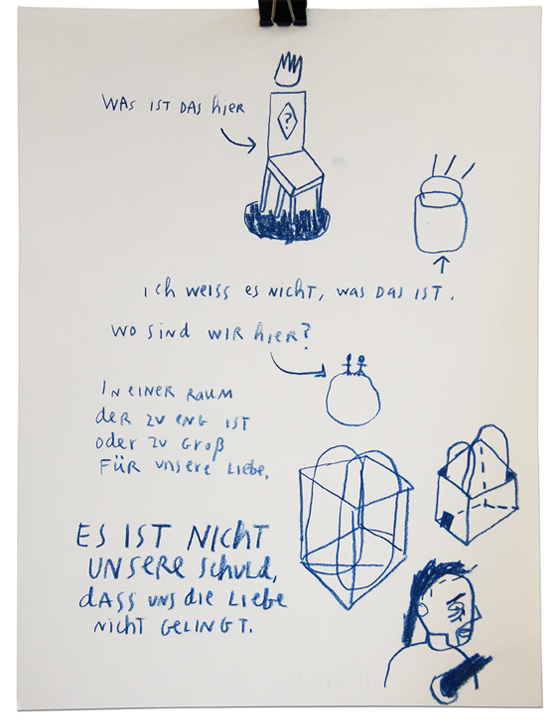 WAS IST DAS hier
?
ich weiss es NicHT, WAS DAS IST.
WO SiND WIR hier?
IN EINER RAUM
deR ZU eNG IST
oder ZU GROß
FÜR UNSERE LIEBE.
ES IST NICHT
UNSERE SCHULD,
dASS UNS die LIEBE
NichT GELINGT.